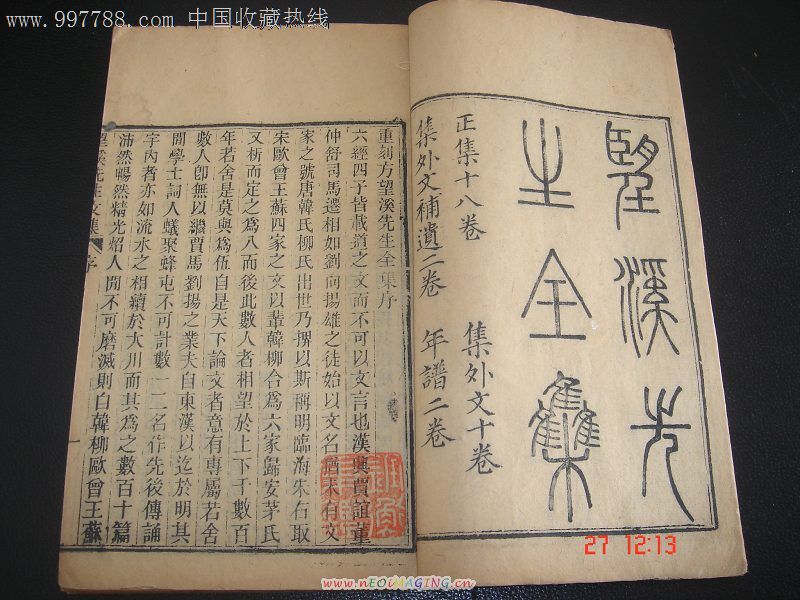 www.997788.com 中国收藏热线
望溪先
生全集
正集十八卷 集外文十卷
集外文補遺二卷 年譜二卷
重刻方望溪先生全集序
六經四子皆載道之文而不可以文言也漢興賈誼董
仲舒司馬遷相如劉向揚雄之徒始以文名猶未有文
家之號唐韓氏柳氏出世乃擇以斯稱明臨海朱右取
宋歐曾王蘇四家之文以輩韓柳合為六家歸安茅氏
又析而定之為八而後此數人者相望於上下千數百
年若舍是莫與為伍自是天下論文者意有專屬若舍
數人卽無以繼賈馬劉揚之業夫自東漢以迄於明其
閒學士詞人蟻聚蜂屯不可計數一二名作先後傳誦
宇內者亦如流水之相續於大川而其為之數百十篇
沛然暢然精光熖人閒不可磨滅則自韓柳歐曾王蘇
望溪先生文集 序 一
27 12:13
www.nEOiMAGING.cn